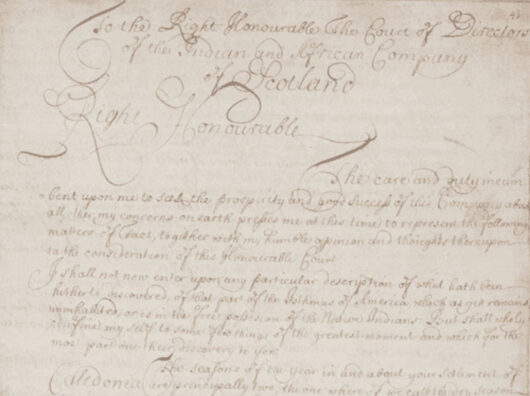 To the Right Honourable The Court of Directors
of the Indian and African Company
of Scotland
Right Honourable
The care and duty incum
bent upon me to seek the prosperity and good success of this Company above
all other my concerns on earth presses me at this time to represent the following
matters of fact, together with my humble opinion and thoughts thereupon
to the consideration of this Honourable Court
I shall not now enter upon any particular description of what hath been
hitherto discovered, of that part of the Isthmus of America which as yet remains
uninhabited, or is in the free possession of the Native Indians But shall wholy
confine my self to some few things of the greatest moment and which for the
most part owe their discovery to you
The seasons of the year in and about your settlement of
Caledonea are principally two, the one where of we call the dry season